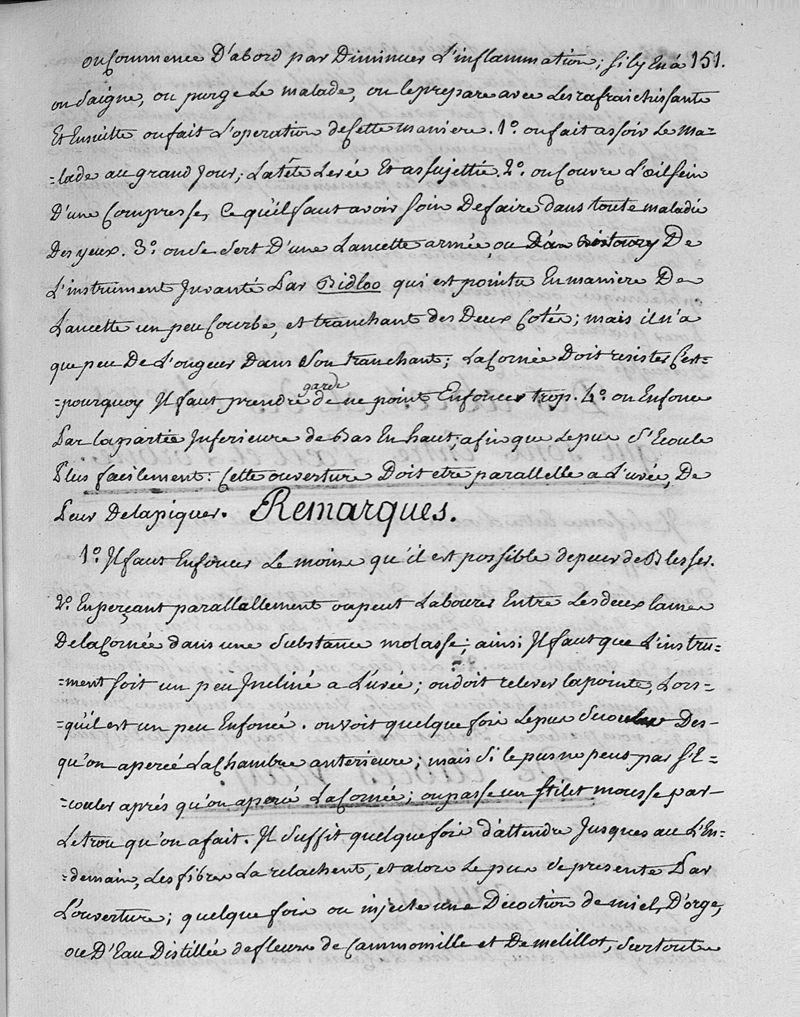 on Commence D'abord par Diminuer L'inflammation; s'il y En a 151.
on saigne, on purge Le malade, on le prepare avec Les rafraichissants
Et Ensuitte on fait L'operation de Cette maniere. 1.° on fait assoir Le ma-
=lade au grand Jour; La tête Levée Et assujettie. 2.° on Couvre L'oeil sein
D'une Compresse, Ce qu'il faut avoir soin De faire dans toute maladie
Des yeux. 3.° on se sert D'une Lancette armée ou De
L'instrument Inventé Par Bidloo qui est pointu En maniere De
Lancette un peu Courbe, et tranchant des Deux Cotés; mais il n'a
que peu De Longueur Dans Son tranchant; La Cornée Doit resister C'est-
=pourquoy Il faut prendre garde de ne point Enfoncer trop. 4.° on Enfonce
Par la partie Inferieure de Bas En haut, afin que Le pus S'Ecoule
Plus facilement: Cette ouverture Doit etre parallelle a L'uvée, De
Peur De la piquer. Remarques.
1.° Il faut Enfoncer Le moins qu'il est possible de peur de Blesser.
2.° En perçant parallallement on peut Labourer Entre Les deux lames
De la Cornée dans une Substance molasse; ainsi Il faut que L'instru-
=ment soit un peu Incliné a L'uvée; on doit relever la pointe, Lors=
=qu'il est un peu Enfoncé. on voit quelque fois Le pus Des-
qu'on a percé La Chambre anterieure; mais si le pus ne peus pas S'E-
=couler aprés qu'on a percé La Cornée; on passe un stilet mousse par-
Le trou qu'on a fait. Il Suffit quelque fois d'attendre Jusques au L'En-
=demain, Les fibres La relachent, et alors Le pus se presente Par
L'ouverture; quelque fois on injecte une Décoction de miel, D'orge,
ou D'Eau Distillée de fleurs de Cammomille et De melillot, surtout